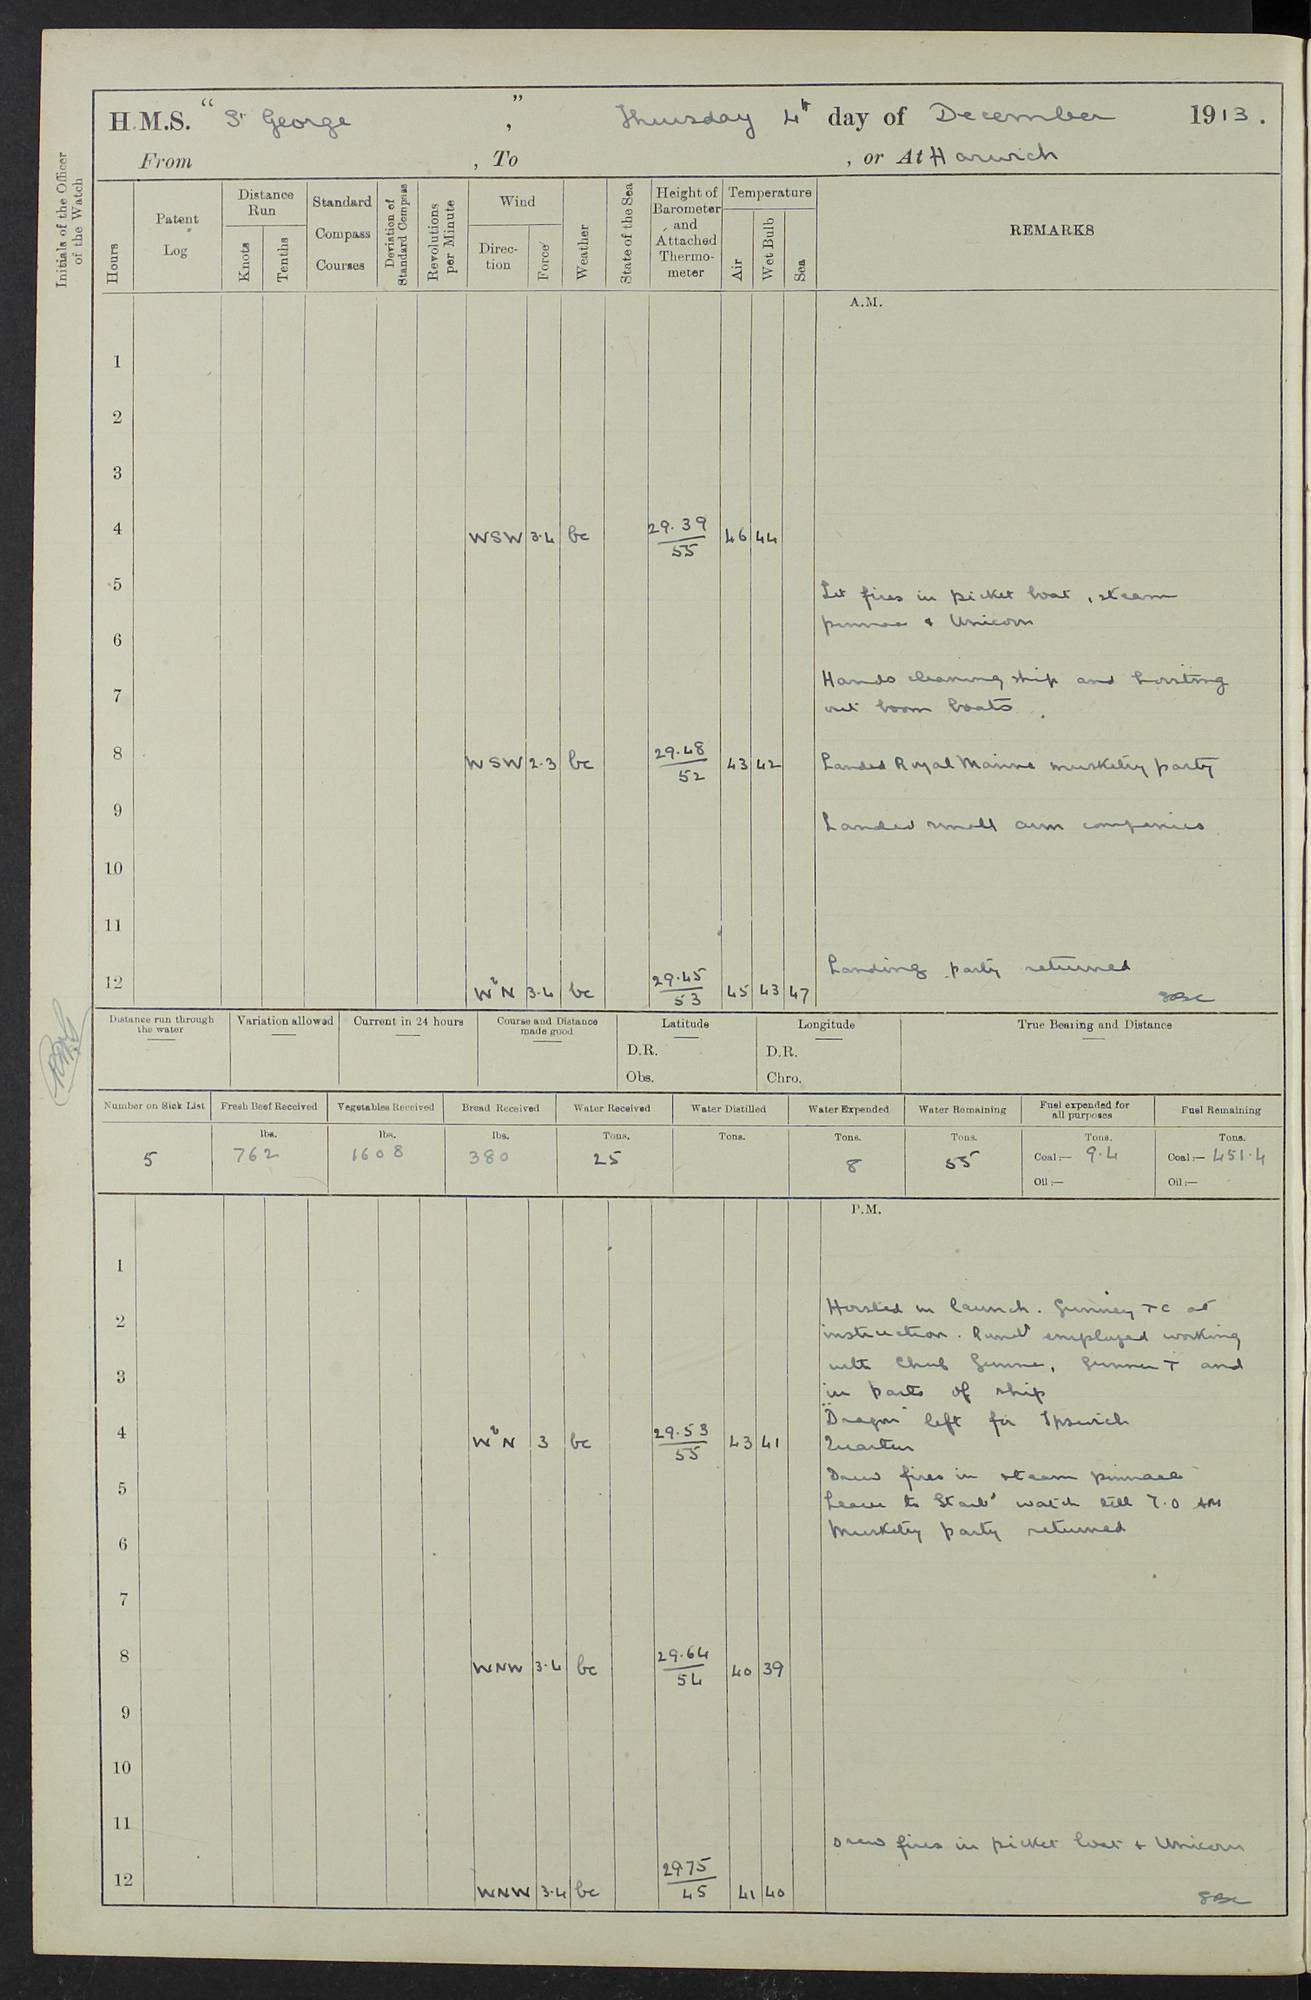 H.M.S. "St George", Thursday 4th day of December 1913.
From , To , or At Harwich
Initials of the Officer of the Watch
Hours
Patent Log
Distance Run
Knots
Tenths
Standard Compass Courses
Deviation of Standard Compass
Revolutions per Minute
Wind
Direc-tion
Force
Weather
State of the Sea
Height of Barometer and Attached Thermo-meter
Temperature
Air
Wet Bulb
Sea
REMARKS
A.M.
1
2
3
4 WSW 3·4 bc 29.39 55 46 44
5 Lit fires in picket boat, steam
6 pinnace & Unicorn
Hands cleaning ship and hoisting
7 out boom boats.
8 WSW 2·3 bc 29.48 52 43 42 Landed Royal Marine musketry party
9 Landed small arm companies
10
11
Landing party returned
12 WbN 3·4 bc 29.45 53 45 43 47
Distance run through the water
Variation allowed
Current in 24 hours
Course and Distance made good
Latitude
D.R.
Obs.
Longitude
D.R.
Chro.
True Bearing and Distance
Number on Sick List 5
Fresh Beef Received lbs. 762
Vegetables Received lbs. 1608
Bread Received lbs. 380
Water Received Tons. 25
Water Distilled Tons.
Water Expended Tons. 8
Water Remaining Tons. 55
Fuel expended for all purposes Tons. Coal:— 9·4 Oil:—
Fuel Remaining Tons. Coal:— 451·4 Oil:—
P.M.
1
Hoisted in launch. at
2 instruction. employed working
3 with Chief Gunner, Gunner T and
in parts of ship
"Dragon" left for Ipswich
4 WbN 3 bc 29.53 55 43 41 Quarters
Drew fires in steam pinnace
5 Leave to Starbd watch till 7.0 AM
6 Musketry party returned
7
8 WNW 3·4 bc 29.64 54 40 39
9
10
11 Drew fires in picket boat & Unicorn
12 WNW 3·4 bc 29 75 45 41 40